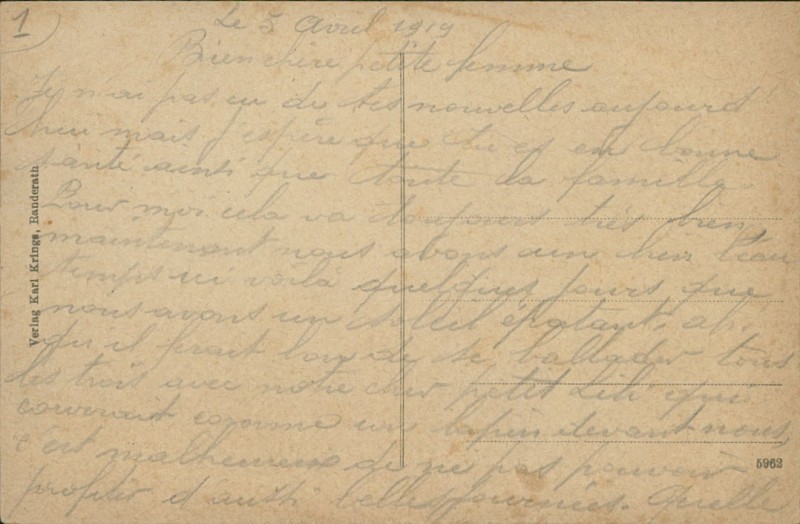 1
Le 5 Avril 1919
Bien chère petite femme
Je n'ai pas eu de tes nouvelles aujourd
hui mais j'espère que tu es en bonne
santé ainsi que toute la famille.
Pour moi cela va toujours très bien,
maintenant nous avons un beau
temps ici voilà quelques jours que
nous avons un soleil épatant. ah.
qu'il ferait bon de se ballader tous
les trois avec notre cher petit Lili qui
courrait comme un lapin devant nous,
c'est malheureux de ne pas pouvoir
profiter d'aussi belles journées. Quelle
Verlag Karl Krings, Randerath
5962